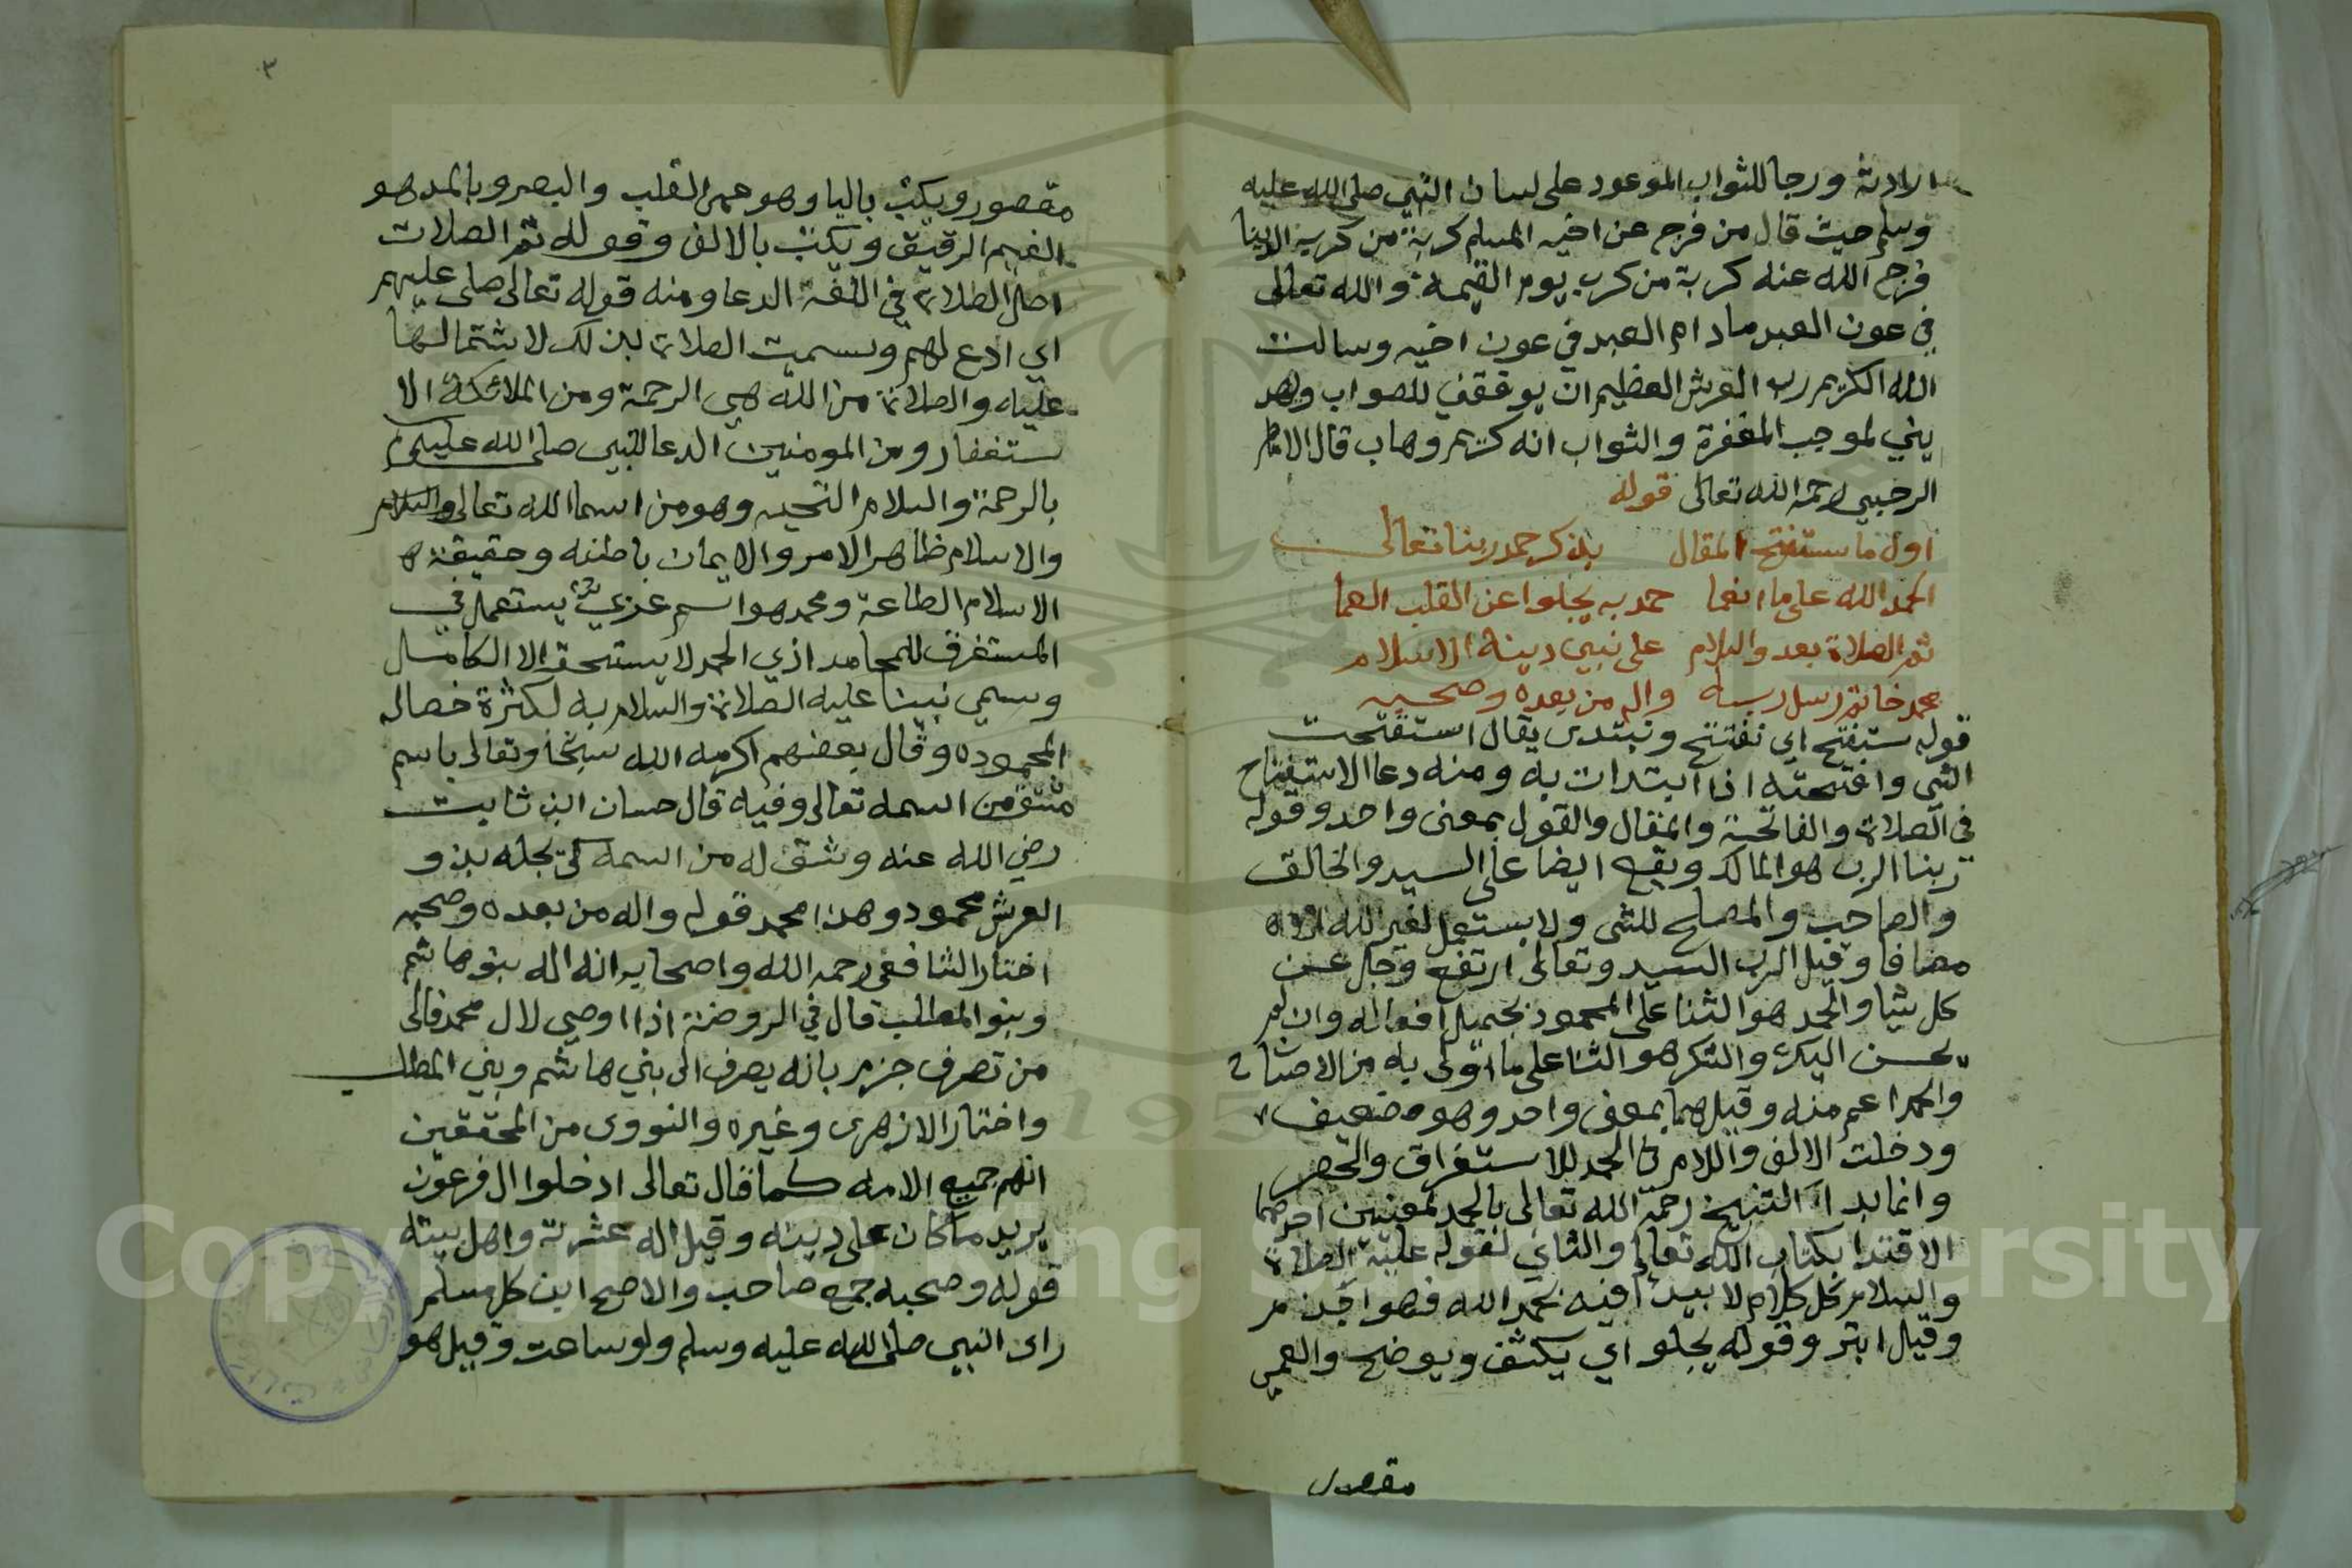 ارادته ورجا للثواب الموعود على لسان النبي صلى الله عليه
وسلم حيث قال من فرج عن اخيه المسلم كربة من كرب الدنيا
فرج الله عنه كربة من كرب يوم القيمة والله تعالى
في عون العبد مادام العبد في عون اخيه وسالت
الله الكريم رب العرش العظيم ان يوفقني للصواب ويهد
يني لموجب المغفرة والثواب انه كريم وهاب قال الامام
الرحبي رحمه الله تعالى قوله
اول ما نستفتح المقال بذكر حمد ربنا تعالى
الحمد الله على ما انعما حمد به يجلوا عن القلب العما
ثم الصلاة بعد والسلام على نبي دينه الاسلام
محمد خاتم رسل ربه واله من بعده وصحبه
قوله نستفتح اي نفتتح ونبتدى يقال استفتحت
الشي وافتتحته اذا ابتدات به ومنه دعا الاستفتاح
في الصلاة والفاتحة والمقال والقول بمعنى واحد وقوله
ربنا الرب هو المالك ويقع ايضا على السيد والخالق
والصاحب والمصلح للشى ولا يستعمل لغير الله الا
مضافا وقيل الرب السيد وتعالى ارتفع وجل عن
كل شيا والحمد هو الثنا على المحمود بجميل افعاله وان لم
يحسن اليك والشكر هو الثنا على ما اولى به من الاحسان
والحمد اعم منه وقيل هما بمعنى واحد وهو ضعيف
ودخلت الالف واللام في الحمد للاستغراق والحصر
وانما بدا الشيخ رحمه الله تعالى بالحمد لمعنيين احدهما
الاقتدا بكتاب الله تعالى والثاني لقوله عليه الصلاة
والسلام كل كلام لا يبدا فيه بحمد الله فهو اجذم
وقيل ابتر وقوله يجلو اي يكشف ويوضح والعمى
مقصور
٣
مقصور ويكتب باليا وهو عمى القلب والبصر وبالمد هو
الغيم الرقيق ويكتب بالالف وقوله ثم الصلات
اصل الصلاة في اللغة الدعا ومنه قوله تعالى صلى عليهم
اي ادع لهم وسميت الصلاة بذلك لاشتمالها
عليه والصلاة من الله هي الرحمة ومن الملائكة الا
ستغفار ومن المومنين الدعا للنبي صلى الله عليه
بالرحمة والسلام التحيه وهو من اسما الله تعالى والسلام
والاسلام ظاهر الامر والايمان باطنه وحقيقة
الاسلام الطاعة ومحمد هو اسم عزي يستعمل في
المستغرق للمحامد اذي الحمد لا يستحقه الا الكامل
وسمي نبينا عليه الصلاة والسلام به لكثرة خصاله
المحموده وقال بعضهم اكرمه الله سبحا وتعالى باسم
مشتق من اسمه تعالى وفيه قال حسان ابن ثابت
رضي الله عنه وشق له من اسمه كي يجله بذو
العرش محمود وهذا محمد قوله واله من بعده وصحبه
اختار الشافعي رحمه الله واصحابه انه اله بنو هاشم
وبنو المطلب قال في الروضة اذا اوصي لال محمد فالى
من تصرف جزم بانه يصرف الى بني هاشم وبني المطلب
واختار الازهرى وغيره والنووى من المحققين
انهم جميع الامه كما قال تعالى ادخلوا ال فرعون
يريد من كان على دينه وقيل اله عشرته واهل بيته
قوله وصحبه جمع صاحب والاصح اين كل مسلم
راى النبي صلى الله عليه وسلم ولو ساعت وقيل هو
Copyright © King Saud University